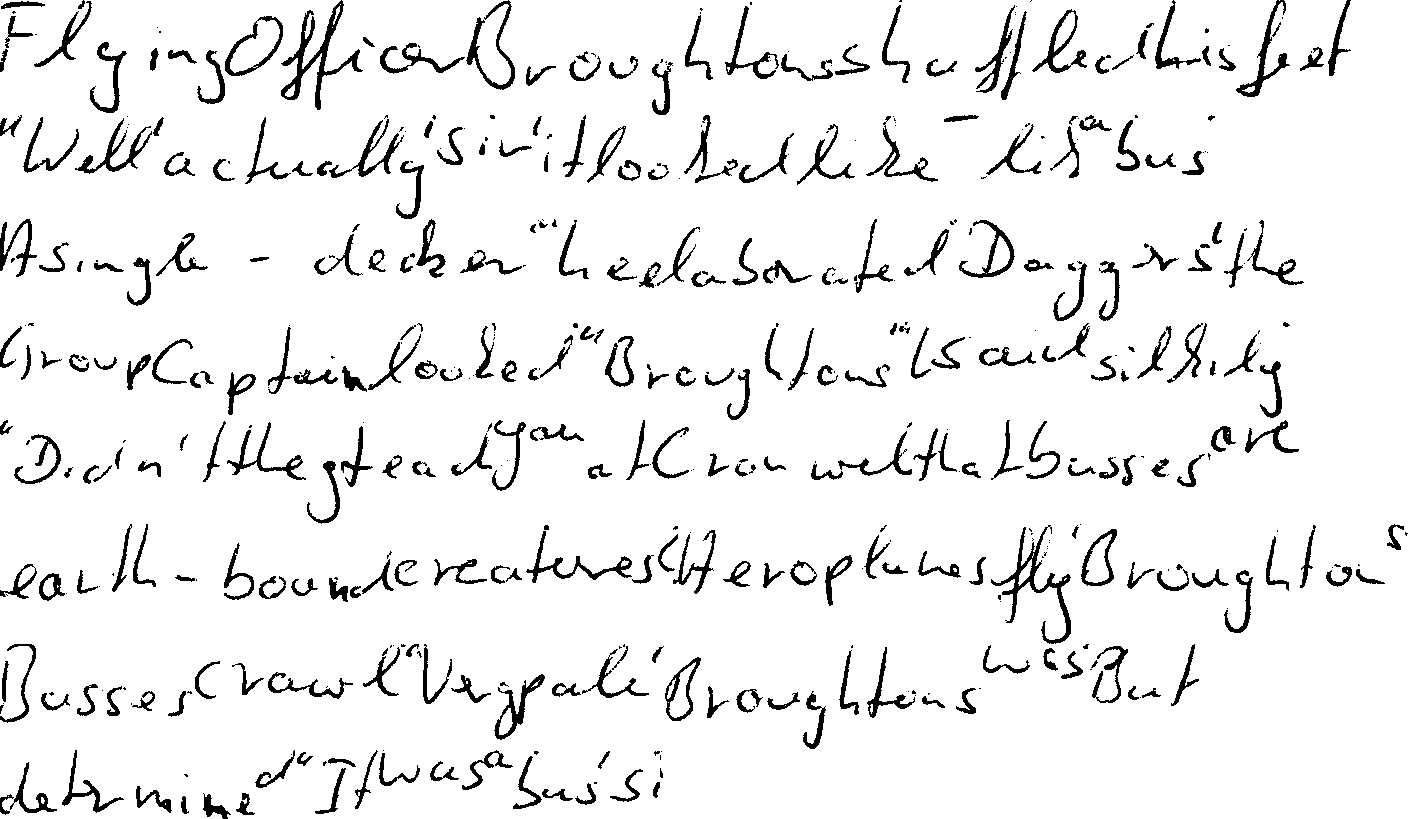 Flying Officer Broughtons shuffled his feet
"Well, actually, sir, it looked like - like a bus.
A single - decker" he elaborated. Daggers, the
Group Captain looked. "Broughtons" he said silkily
"Didn't they teach you at Cranwell that busses are
earth - bound creatures? Aeroplanes fly, Broughtons
Busses crawl" Very pale, Broughtons was. But
determined. "It was a bus, si